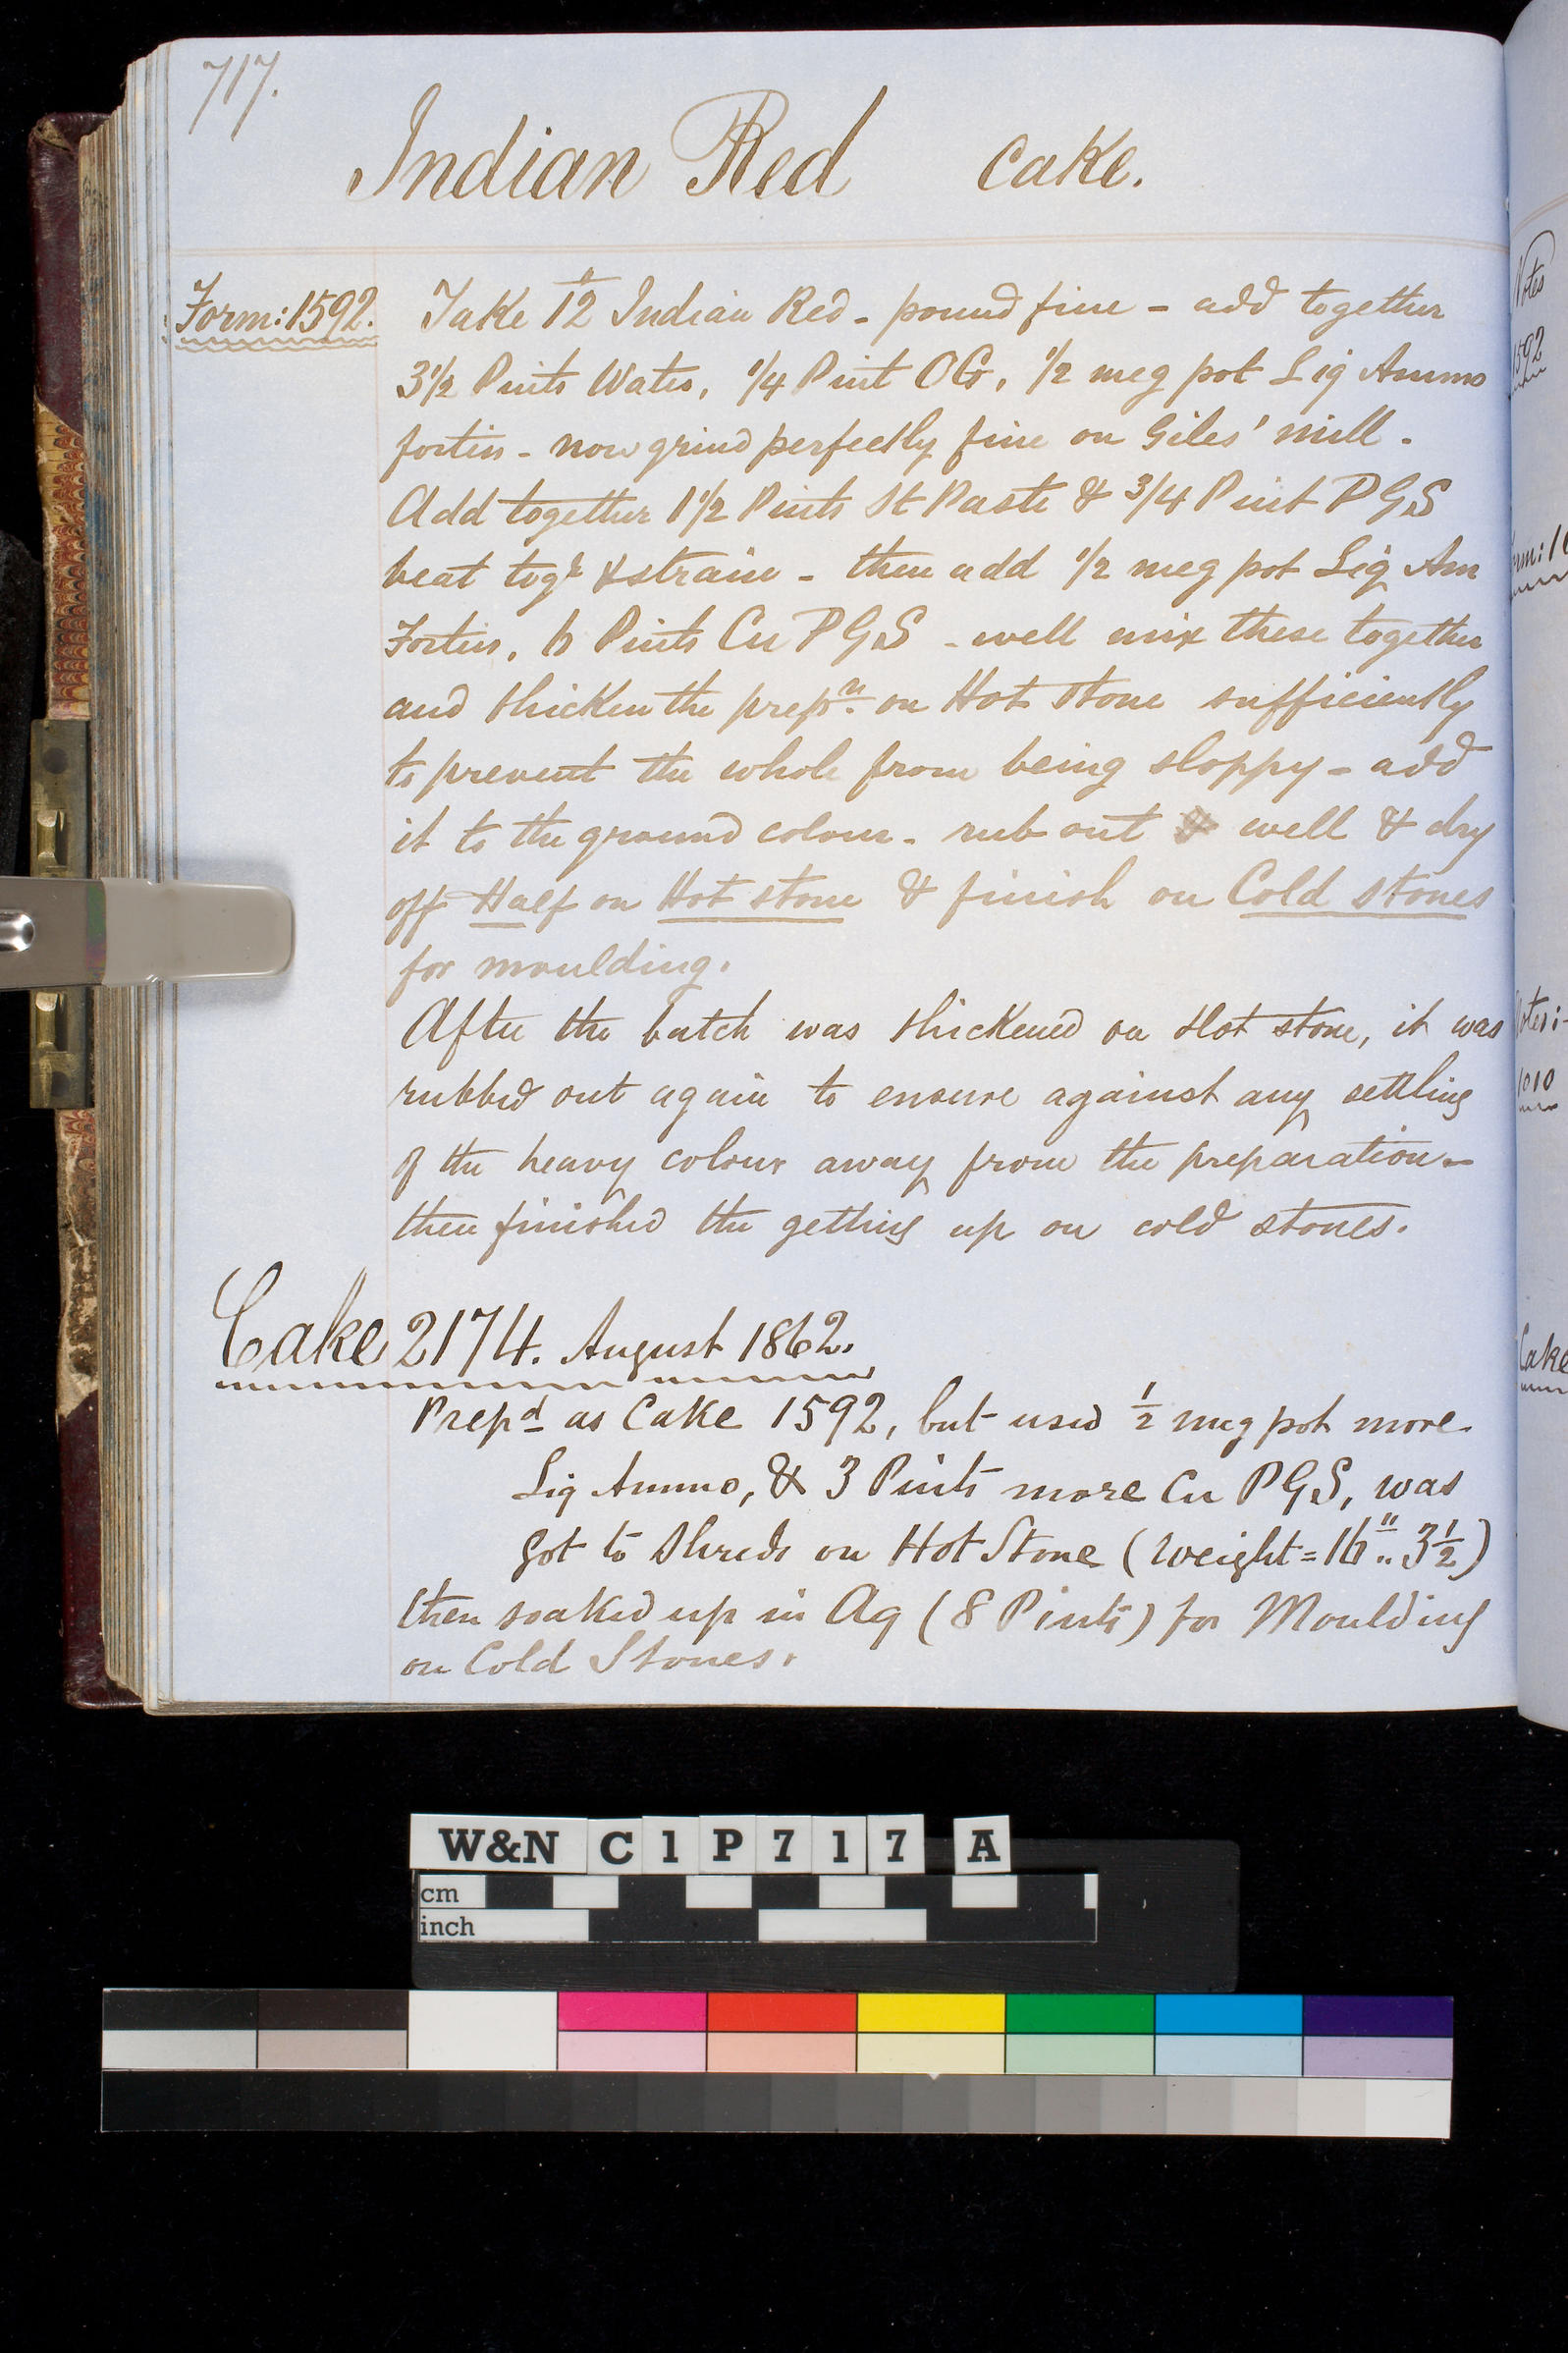 717.
Indian Red cake.
Form: 1592. Take 12" Indian Red - pound fine - add together
3 1/2 Pints Water, 1/4 Pint OG, 1/2 meg pot Liq Ammo
fortis - now grind perfectly fine on Giles' mill.
Add together 1 1/2 Pints St Paste & 3/4 Pint PGS
beat togr & strain - then add 1/2 meg pot Liq Am
Fortis, 6 Pints Cu PGS - well mix these together
and thicken the prepn. on Hot Stone sufficiently
to prevent the whole from being sloppy - add
it to the ground colour - rub out well & dry
off Half on Hot stone & finish on Cold stones
for moulding.
After the batch was thickened on Hot stone, it was
rubbed out again to ensure against any settling
of the heavy colour away from the preparation -
then finished the getting up on cold stones.
Cake 2174. August 1862.
Prepd as Cake 1592, but used 1/2 meg pot more
Liq Ammo, & 3 Pints more Cu PGS, was
got to Shreds on Hot Stone (Weight = 16".. 3 1/2)
then soaked up in Aq (8 Pints) for Moulding
on Cold Stones.
Notes
1592
Notes:-
1010
Cake
W&N C1P717 A
cm
inch